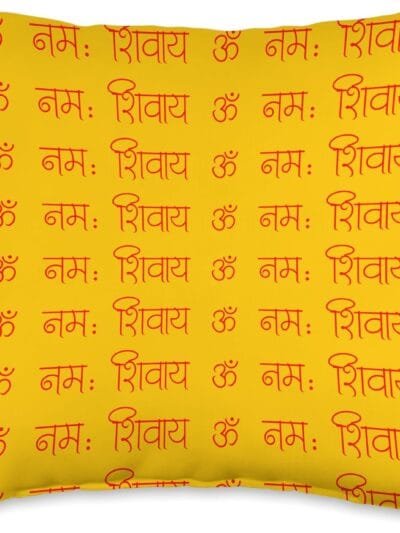 नम: शिवाय ॐ नम: शिवाय
ॐ नम: शिवाय ॐ नम: शिवाय
ॐ नम: शिवाय ॐ नम: शिवाय
ॐ नम: शिवाय ॐ नम: शिवाय
ॐ नम: शिवाय ॐ नम: शिवाय
ॐ नम: शिवाय ॐ नम: शिवाय
ॐ नम: शिवाय ॐ नम: शिवाय
ॐ नम: शिवाय ॐ नम: शिवाय
नम: शिवाय ॐ नम: शिवाय